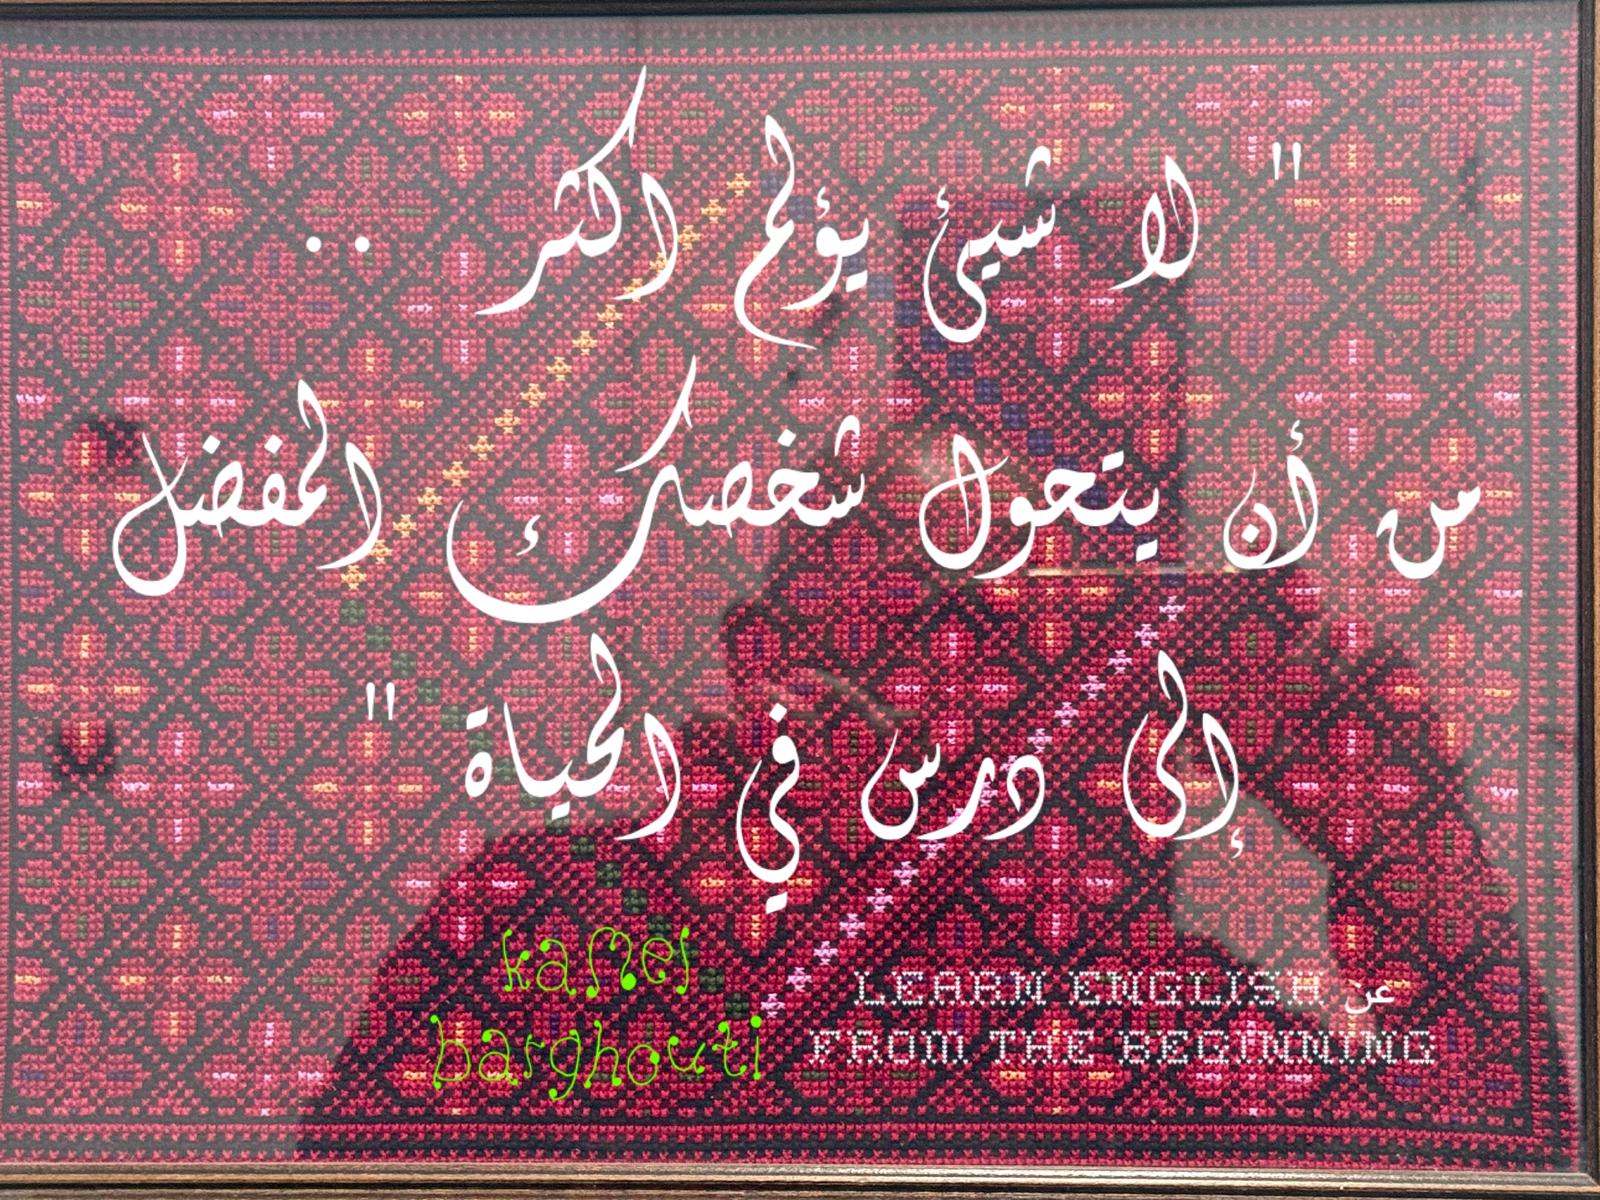 " لا شيئ يؤلم اكثر ..
من أن يتحول شخصك المفضل
إلى درس في الحياة "
kamel
barghouti
عن LEARN ENGLISH
FROM THE BEGINNING